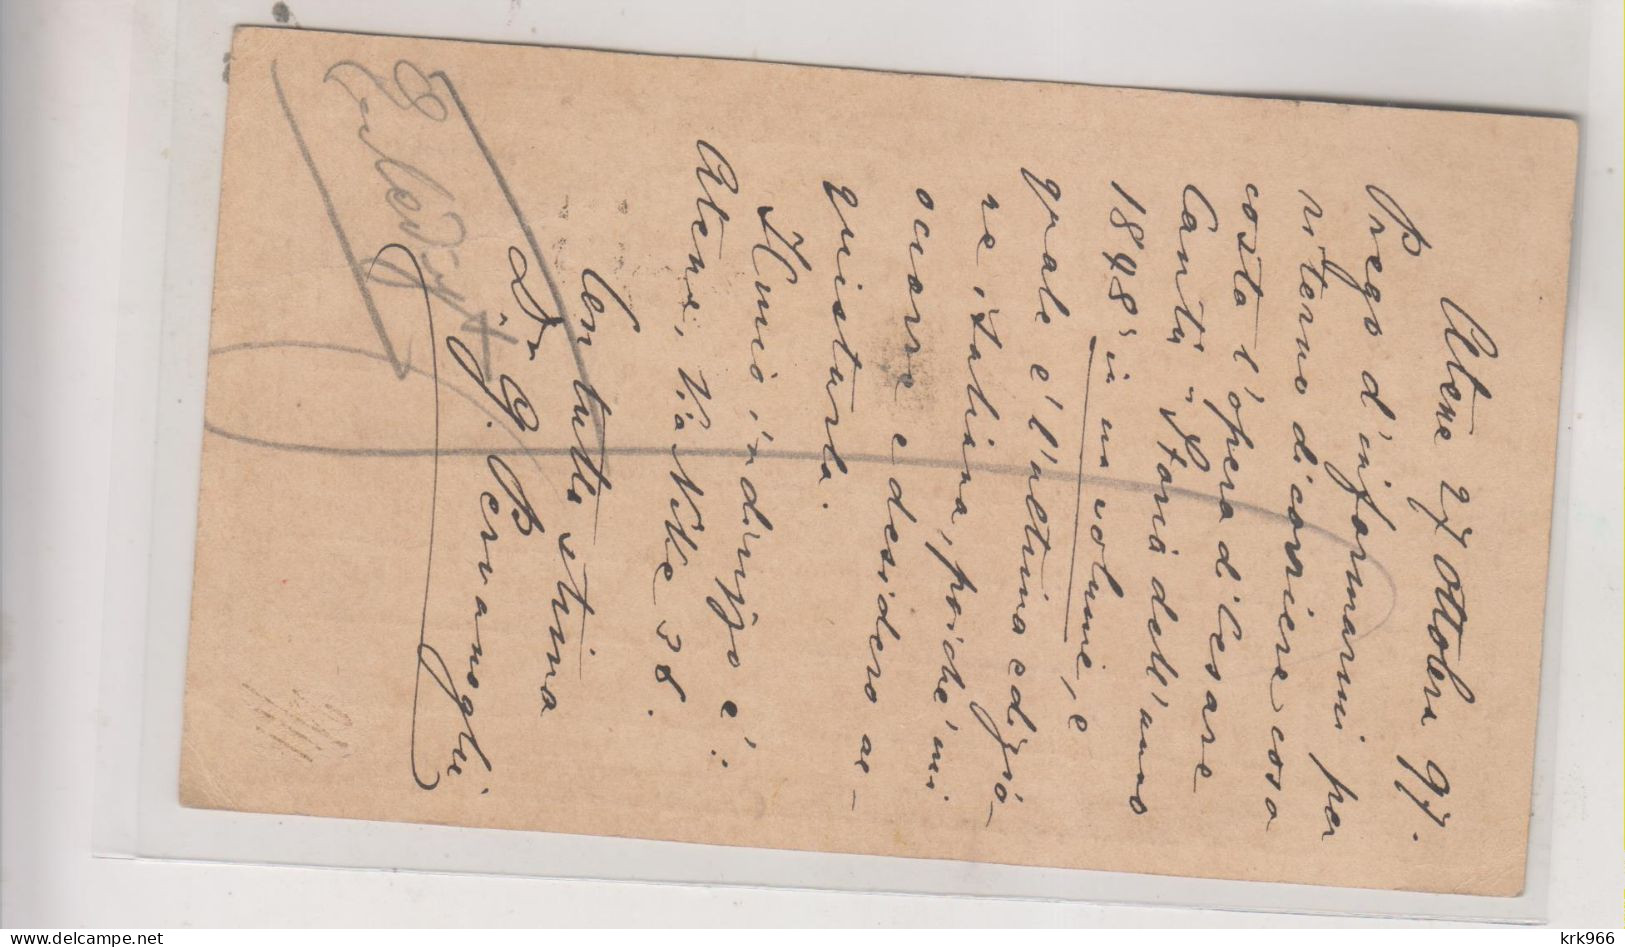 Atene 27 Ottobre 97.
Prego d'informarmi per
ritorno di corriere cosa
costa l'opera di Cesare
Cantù „Storia dell'anno
1848" in un volume, e
quale è l'ultima edizio-
ne italiana, poichè mi
occorre e desidero ac-
quistarla.
Il mio indirizzo è:
Atene, Via Nike 38.
Con tutta stima
Dr. G. Pervanoglù
krk966